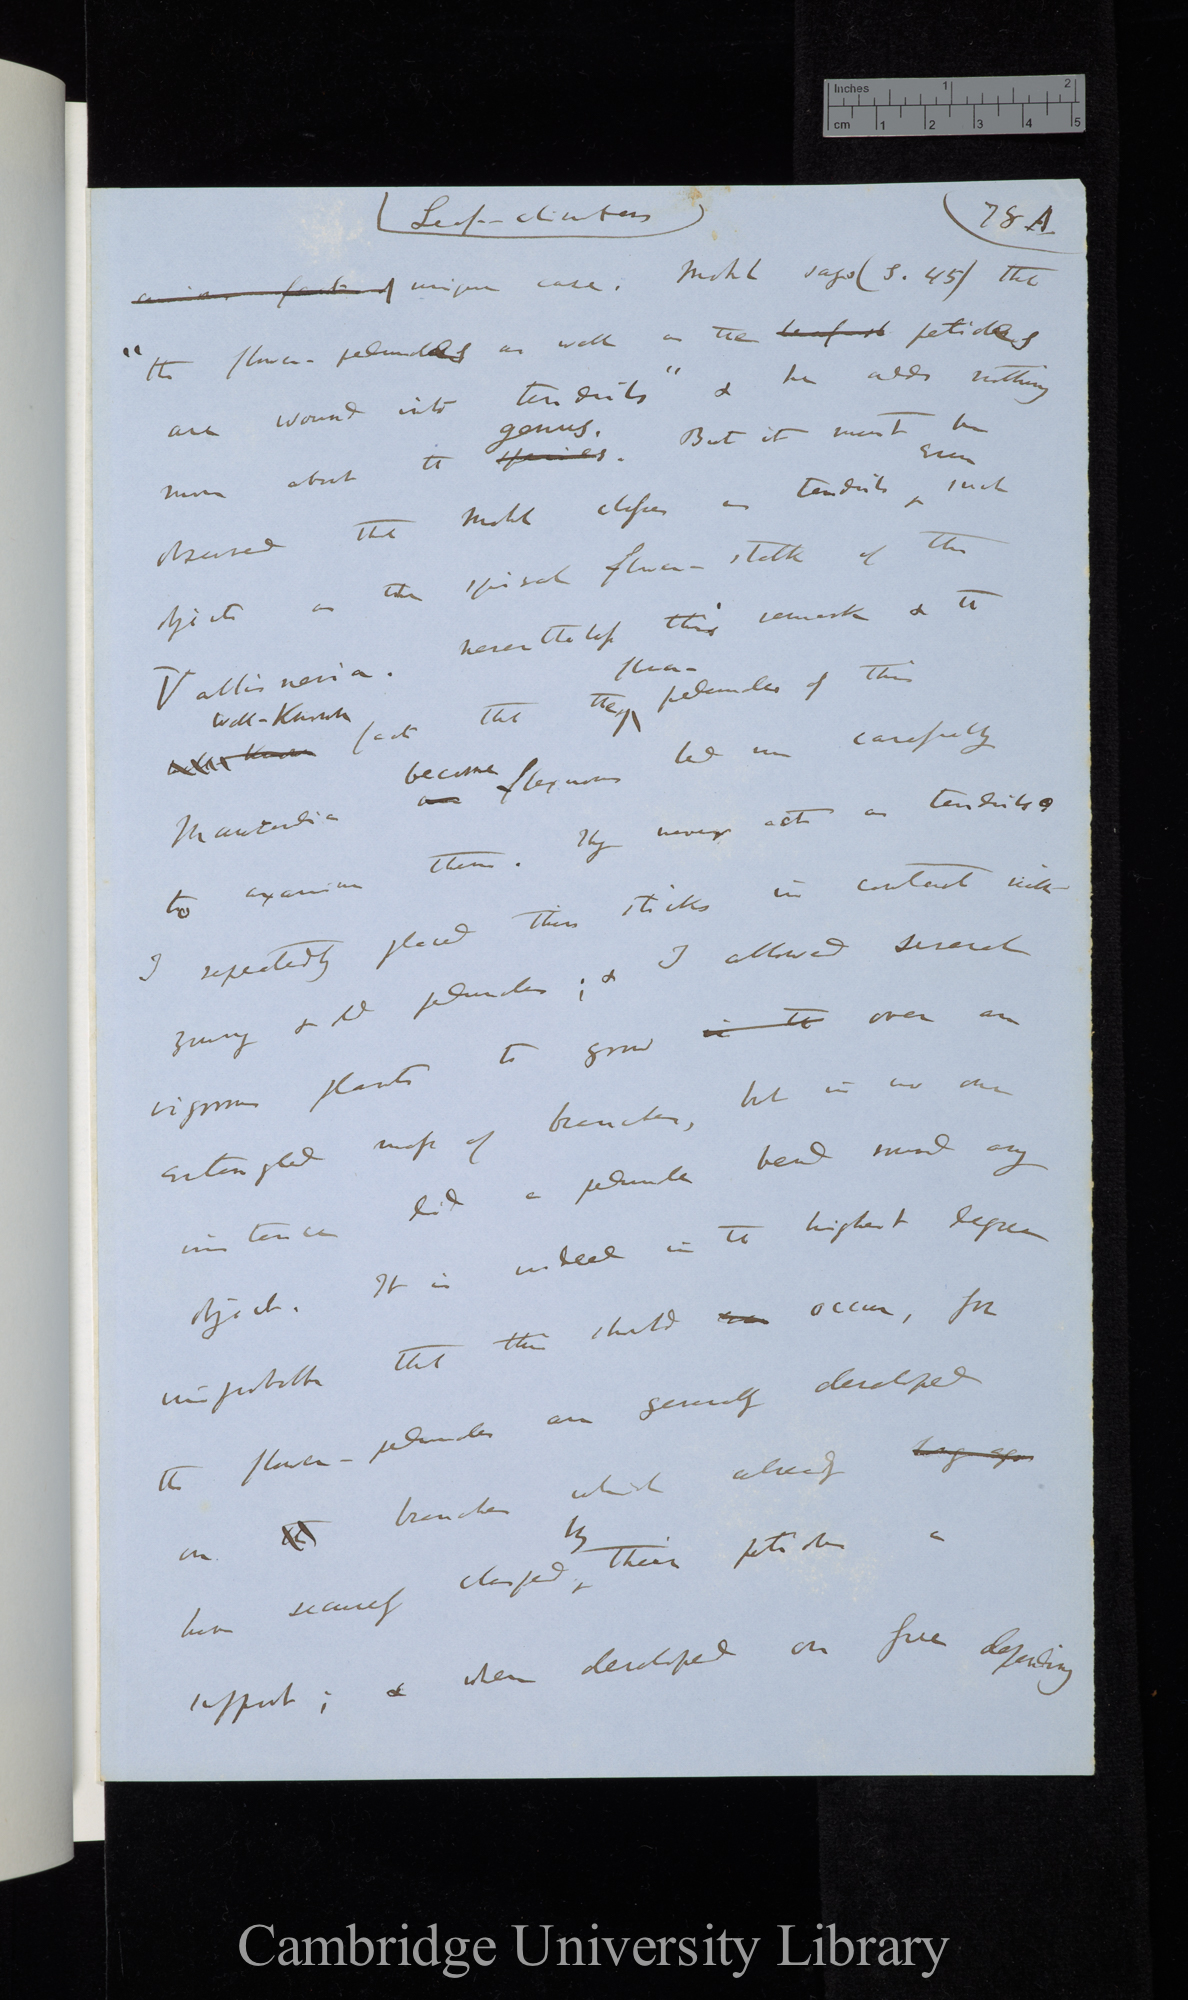 Inches 1 2
cm 1 2 3 4 5
Leaf-climbers
78 A
unique case. Mohl says (S. 45) that
"the flower-peduncles as well as the leafstalk petioles
are wound into tendrils" & he adds nothing
genus.
more about the species. But it must be
even
observed that Mohl classes as tendrils, such
objects as the spiral flower-stalk of the
Vallisneria. nevertheless this remark & the
flower-
well-known fact that the peduncles of this
well known
become
Maurandia are flexuous led me carefully
to examine them. They never act as tendrils.
I repeatedly placed thin sticks in contact with
young & old peduncles; & I allowed several
vigorous plants to grow in the over an
entangled mass of branches, but in no one
instance did a peduncle bend round any
object. It is indeed in the highest degree
improbable that this should occur, for
the flower-peduncles are generally developed
on branches which already long ago
by
have securely clasped, their petioles a
support; & when developed on free depending
Cambridge University Library